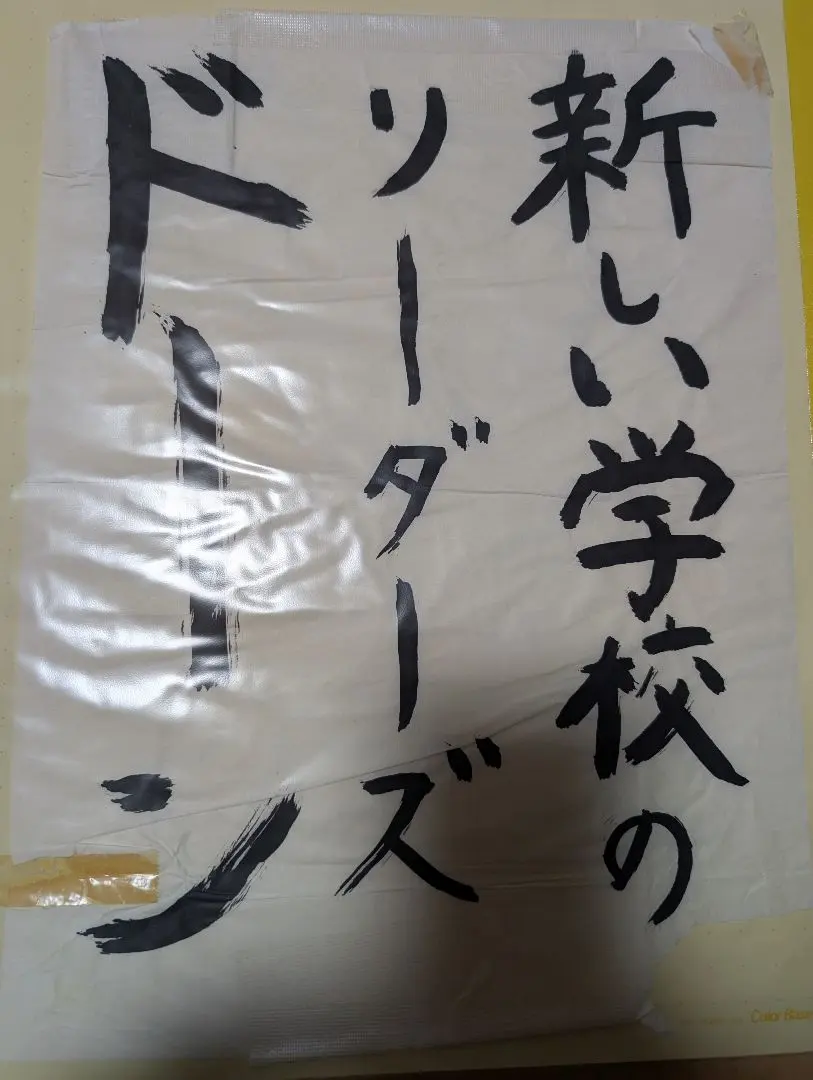 新しい学校の
リーダーズ
ドーン